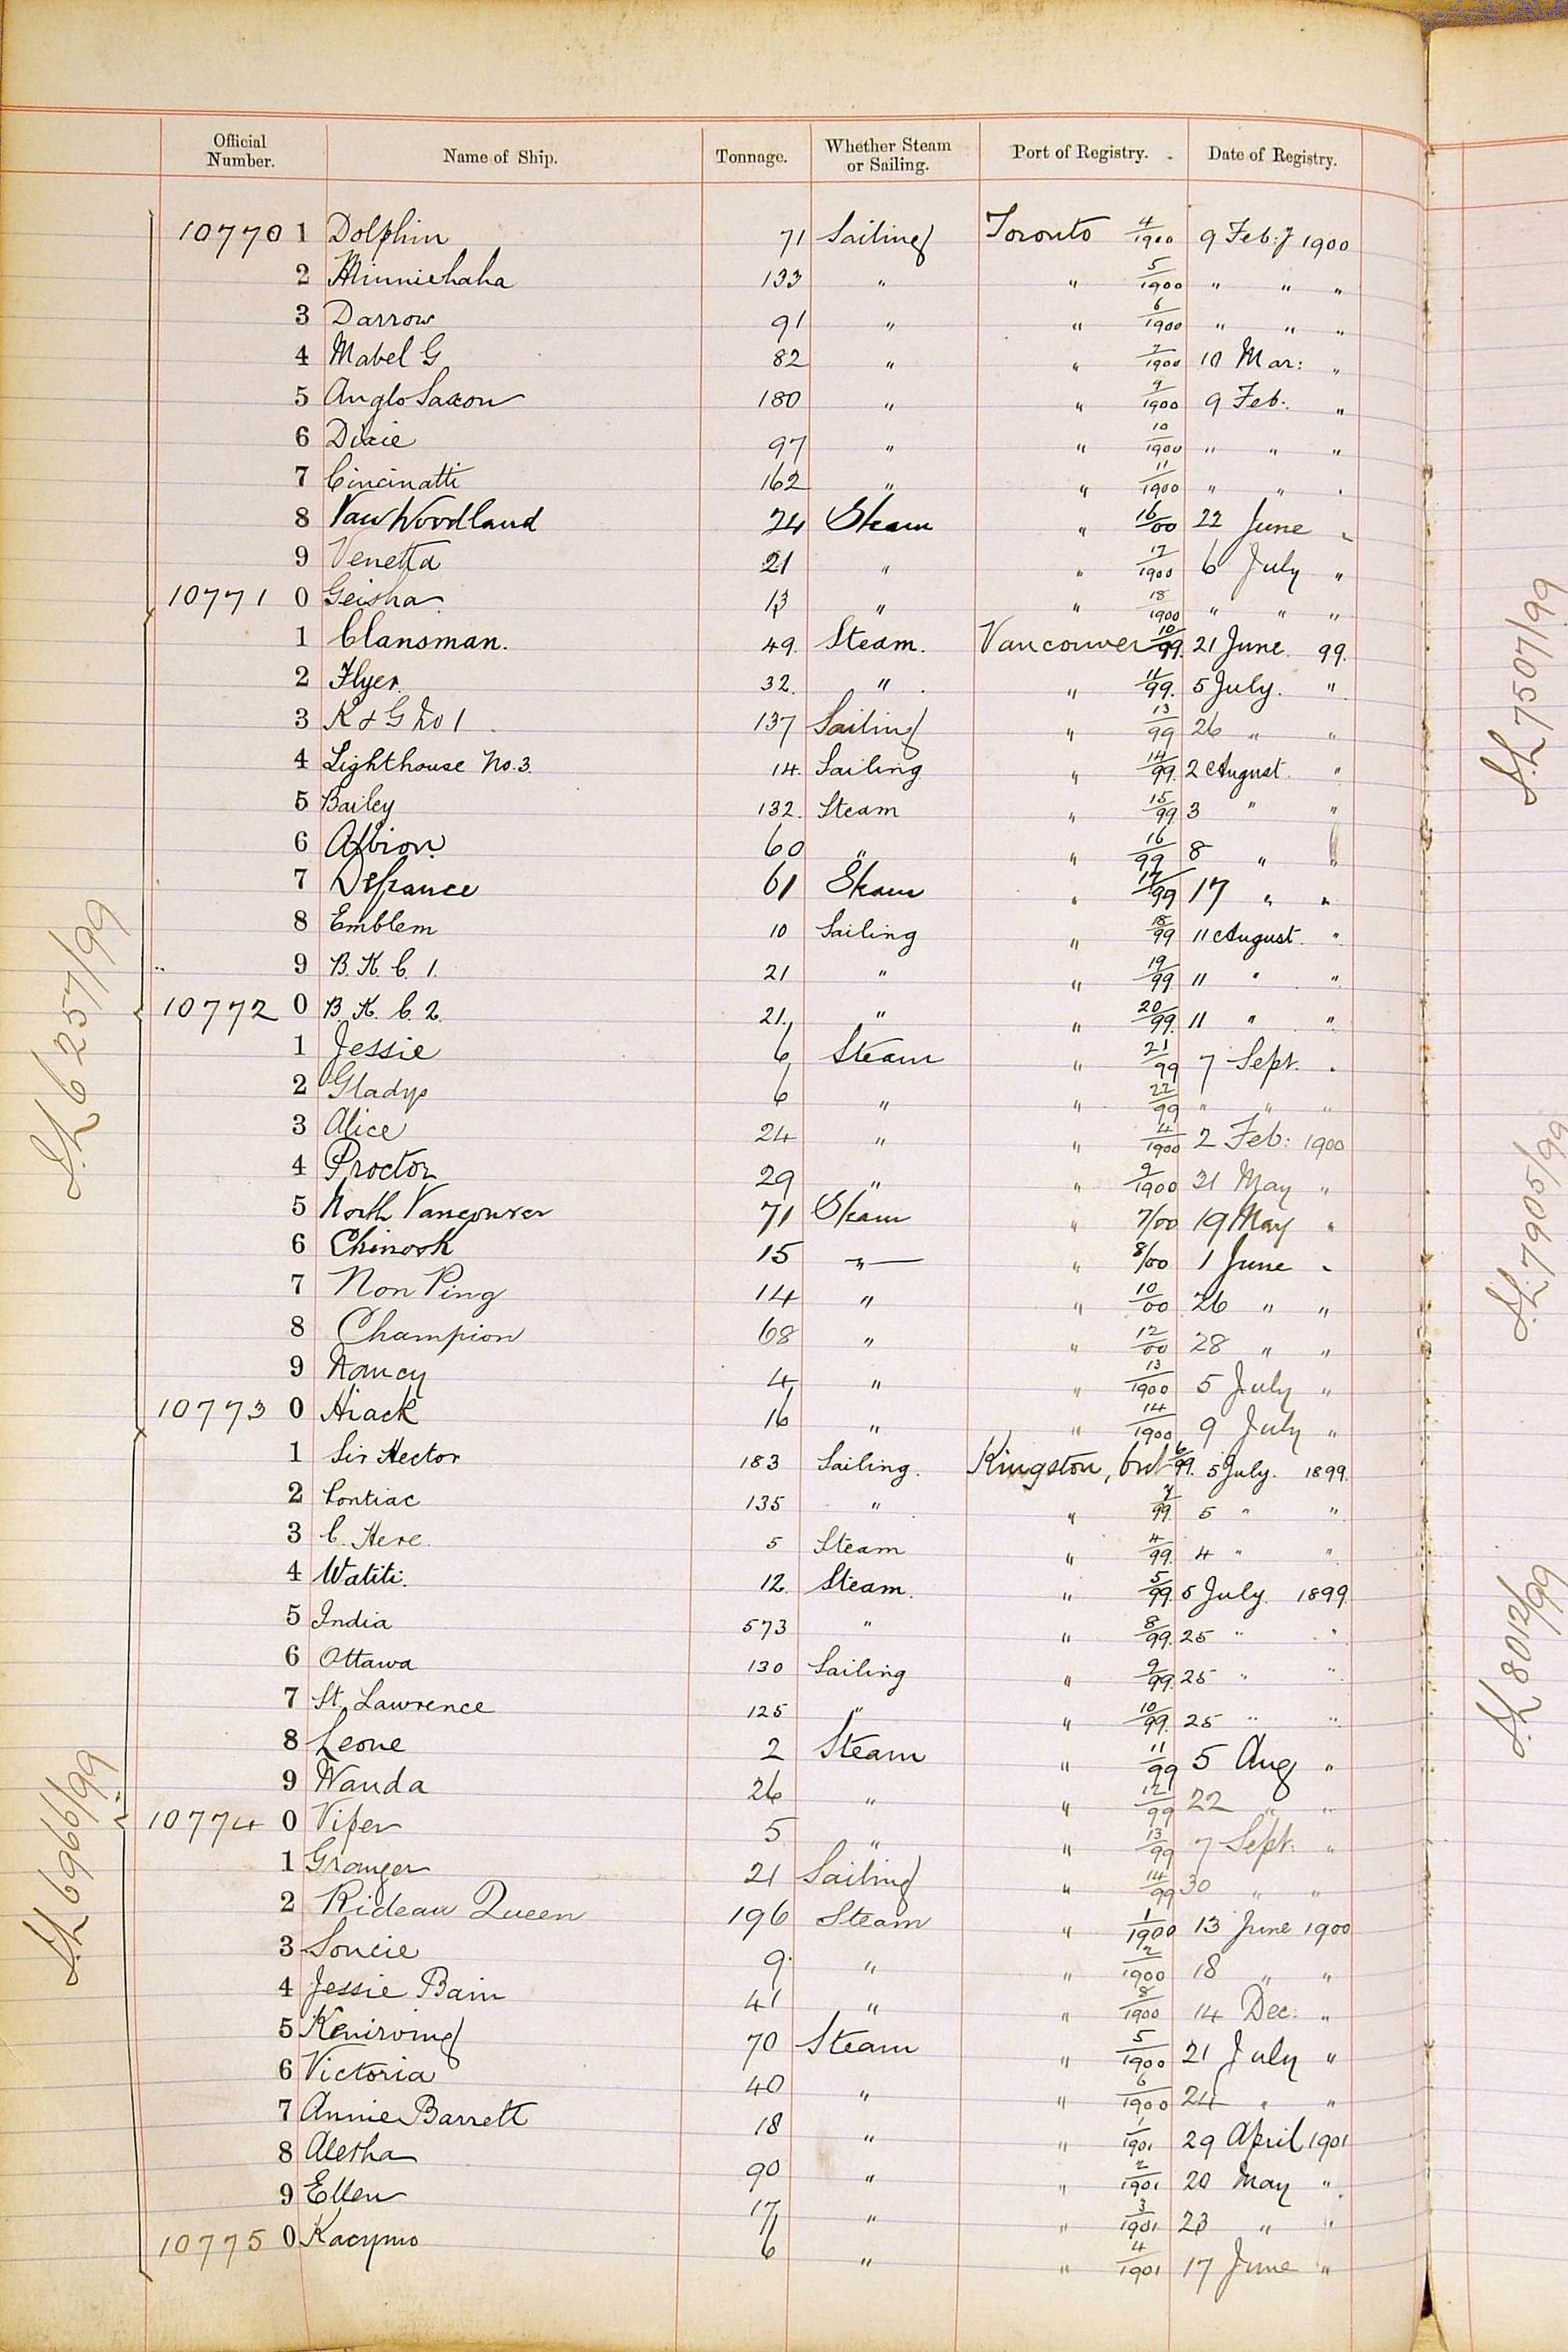 Official Number. Name of Ship. Tonnage. Whether Steam or Sailing. Port of Registry. Date of Registry.
10770 1 Dolphin 71 Sailing Toronto 4/1900 9 Feb:y 1900
2 Minniehaha 133 " " 5/1900 " " "
3 Darrow 91 " " 6/1900 " " "
4 Mabel G 82 " " 7/1900 10 Mar: "
5 Anglo Saxon 180 " " 9/1900 9 Feb. "
6 Dixie 97 " " 10/1900 " " "
7 Cincinatti 162 " " 11/1900 " " "
8 Van Woodland 24 Steam " 16/00 22 June "
9 Venetta 21 " " 17/1900 6 July "
10771 0 Geisha 13 " " 18/1900 " " "
1 Clansman. 49. Steam. Vancouver 10/99. 21 June 99.
2 Flyer. 32. " " 11/99. 5 July. "
3 K & G No 1 137 Sailing " 13/99 26 " "
4 Lighthouse No. 3. 14. Sailing " 14/99. 2 August. "
5 Bailey 132. Steam " 15/99 3 " "
6 Albion. 60 " " 16/99 8 " "
7 Defiance 61 Steam " 17/99 17 " "
8 Emblem 10 Sailing " 18/99 11 August. "
9 B. K. C. 1. 21 " " 19/99. 11 " "
10772 0 B. K. C. 2. 21. " " 20/99. 11 " "
1 Jessie 6 Steam " 21/99 7 Sept. "
2 Gladys 6 " " 22/99 " " "
3 Alice 24 " " 4/1900 2 Feb: 1900
4 Proctor 29 " " 9/1900 31 May "
5 North Vancouver 71 Steam " 7/00 19 May "
6 Chinook 15 " " 8/00 1 June "
7 Non Ping 14 " " 10/00 26 " "
8 Champion 68 " " 12/00 28 " "
9 Nancy 4 " " 13/1900 5 July "
10773 0 Hiack 16 " " 14/1900 9 July "
1 Sir Hector 183 Sailing. Kingston, Ont 6/99. 5 July. 1899.
2 Pontiac 135 " " 7/99. 5 " "
3 C. Here. 5 Steam " 4/99. 4 " "
4 Watiti. 12. Steam. " 5/99. 5 July. 1899.
5 India 573 " " 8/99. 25 " "
6 Ottawa 130 Sailing " 9/99. 25 " "
7 St. Lawrence 125 " " 10/99. 25 " "
8 Leone 2 Steam " 11/99 5 Aug "
9 Wanda 26 " " 12/99 22 " "
10774 0 Viper 5 " " 13/99 7 Sept. "
1 Granger 21 Sailing " 14/99 30 " "
2 Rideau Queen 196 Steam " 1/1900 13 June 1900
3 Soucie 9 " " 2/1900 18 " "
4 Jessie Bain 41 " " 8/1900 14 Dec: "
5 Kenirving 70 Steam " 5/1900 21 July "
6 Victoria 40 " " 6/1900 24 " "
7 Annie Barrett 18 " " 1/1901 29 April 1901
8 Aletha 90 " " 2/1901 20 May "
9 Ellen 17 " " 3/1901 23 " "
10775 0 6 " " 4/1901 17 June "
S.L 6257/99
S.L 6966/99
S.L 7507/99
S.L. 7905/99
S.L 8012/99